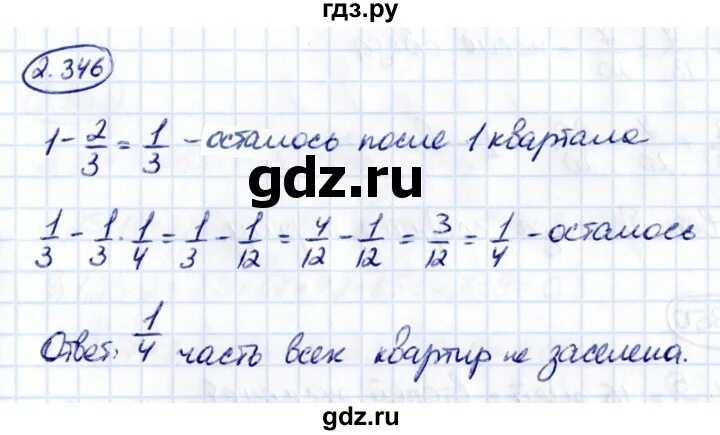 гдз.ру
2.346
1 - 2/3 = 1/3 - осталось после 1 квартала
gdz.ru
1/3 - 1/3 · 1/4 = 1/3 - 1/12 = 4/12 - 1/12 = 3/12 = 1/4 - осталось
Ответ: 1/4 часть всех квартир не заселена.
gdz.ru